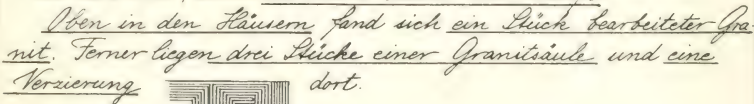 Oben in den Häusern fand sich ein Stück bearbeiteter Gra-
nit. Ferner liegen drei Stücke einer Granitsäule und eine
Verzierung dort.